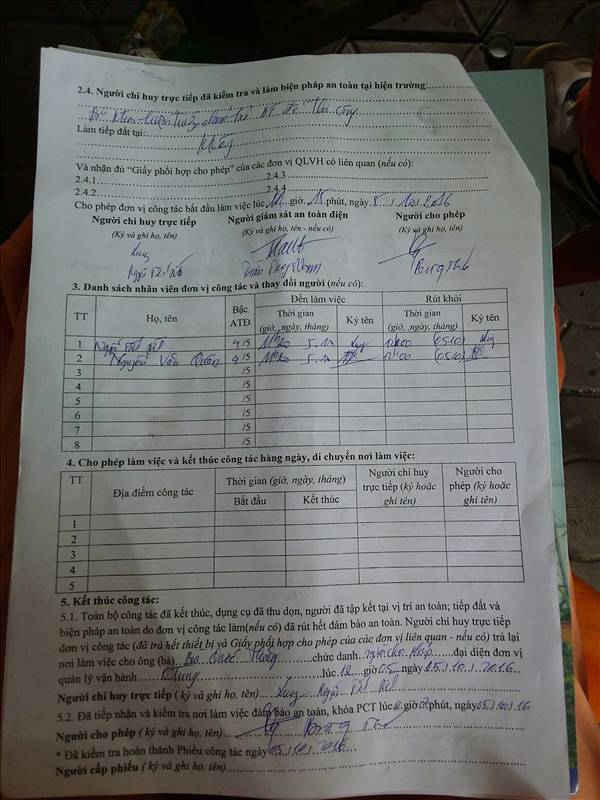 2.4. Người chỉ huy trực tiếp đã kiểm tra và làm biện pháp an toàn tại hiện trường:
Làm tiếp đất tại:
Và nhận đủ "Giấy phối hợp cho phép" của các đơn vị QLVH có liên quan (nếu có):
2.4.1 2.4.3
2.4.2 2.4.4
Cho phép đơn vị công tác bắt đầu làm việc lúc 11 giờ 15 phút, ngày 5 / 10 / 2016
Người chỉ huy trực tiếp Người giám sát an toàn điện Người cho phép
(Ký và ghi họ, tên) (Ký và ghi họ, tên - nếu có) (Ký và ghi họ, tên)
3. Danh sách nhân viên đơn vị công tác và thay đổi người (nếu có):
TT Họ, tên Bậc ATĐ Đến làm việc Rút khỏi
Thời gian (giờ, ngày, tháng) Ký tên Thời gian (giờ, ngày, tháng) Ký tên
1 4/5
2 Nguyễn Văn Quân 4/5
3 /5
4 /5
5 /5
6 /5
7 /5
8 /5
4. Cho phép làm việc và kết thúc công tác hàng ngày, di chuyển nơi làm việc:
TT Địa điểm công tác Thời gian (giờ, ngày, tháng) Người chỉ huy trực tiếp (ký hoặc ghi tên) Người cho phép (ký hoặc ghi tên)
Bắt đầu Kết thúc
1
2
3
4
5
5. Kết thúc công tác:
5.1. Toàn bộ công tác đã kết thúc, dụng cụ đã thu dọn, người đã tập kết tại vị trí an toàn; tiếp đất và
biện pháp an toàn do đơn vị công tác làm(nếu có) đã rút hết đảm bảo an toàn. Người chỉ huy trực tiếp
đơn vị công tác (đã trả hết thiết bị và Giấy phối hợp cho phép của các đơn vị liên quan - nếu có) trả lại
nơi làm việc cho ông (bà) chức danh người cho phép đại diện đơn vị
quản lý vận hành lúc 12 giờ 05 ngày 05 / 10 / 2016
Người chỉ huy trực tiếp ( ký và ghi họ, tên)
5.2. Đã tiếp nhận và kiểm tra nơi làm việc đảm bảo an toàn, khóa PCT lúc giờ phút, ngày 05 / 10 / 16
Người cho phép ( ký và ghi họ, tên)
* Đã kiểm tra hoàn thành Phiếu công tác ngày 05 / 10 / 2016
Người cấp phiếu ( ký và ghi họ, tên)